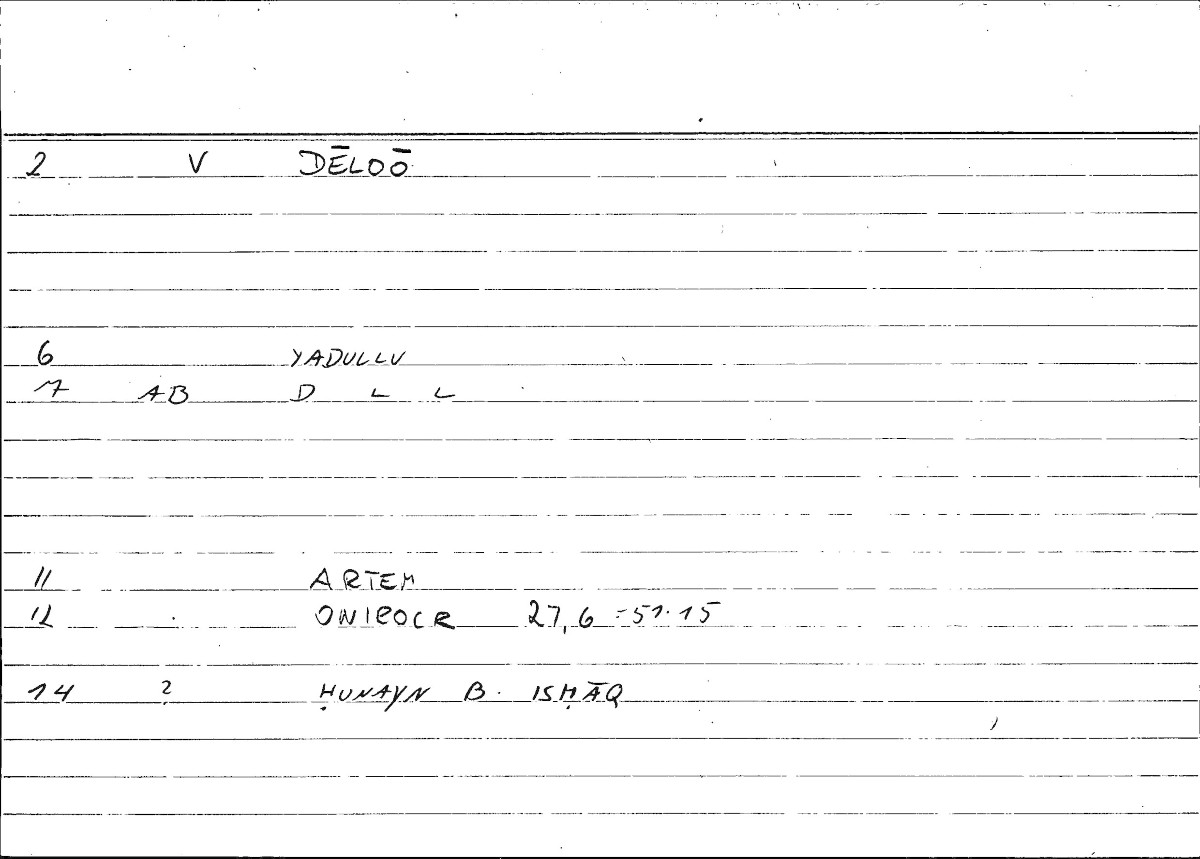 2 V DĒLOŌ
6 YADULLU
7 AB D L L
11 ARTEM
12 ONIROCR 27,6 = 51.15
14 ? ḤUNAYN B. ISḤĀQ